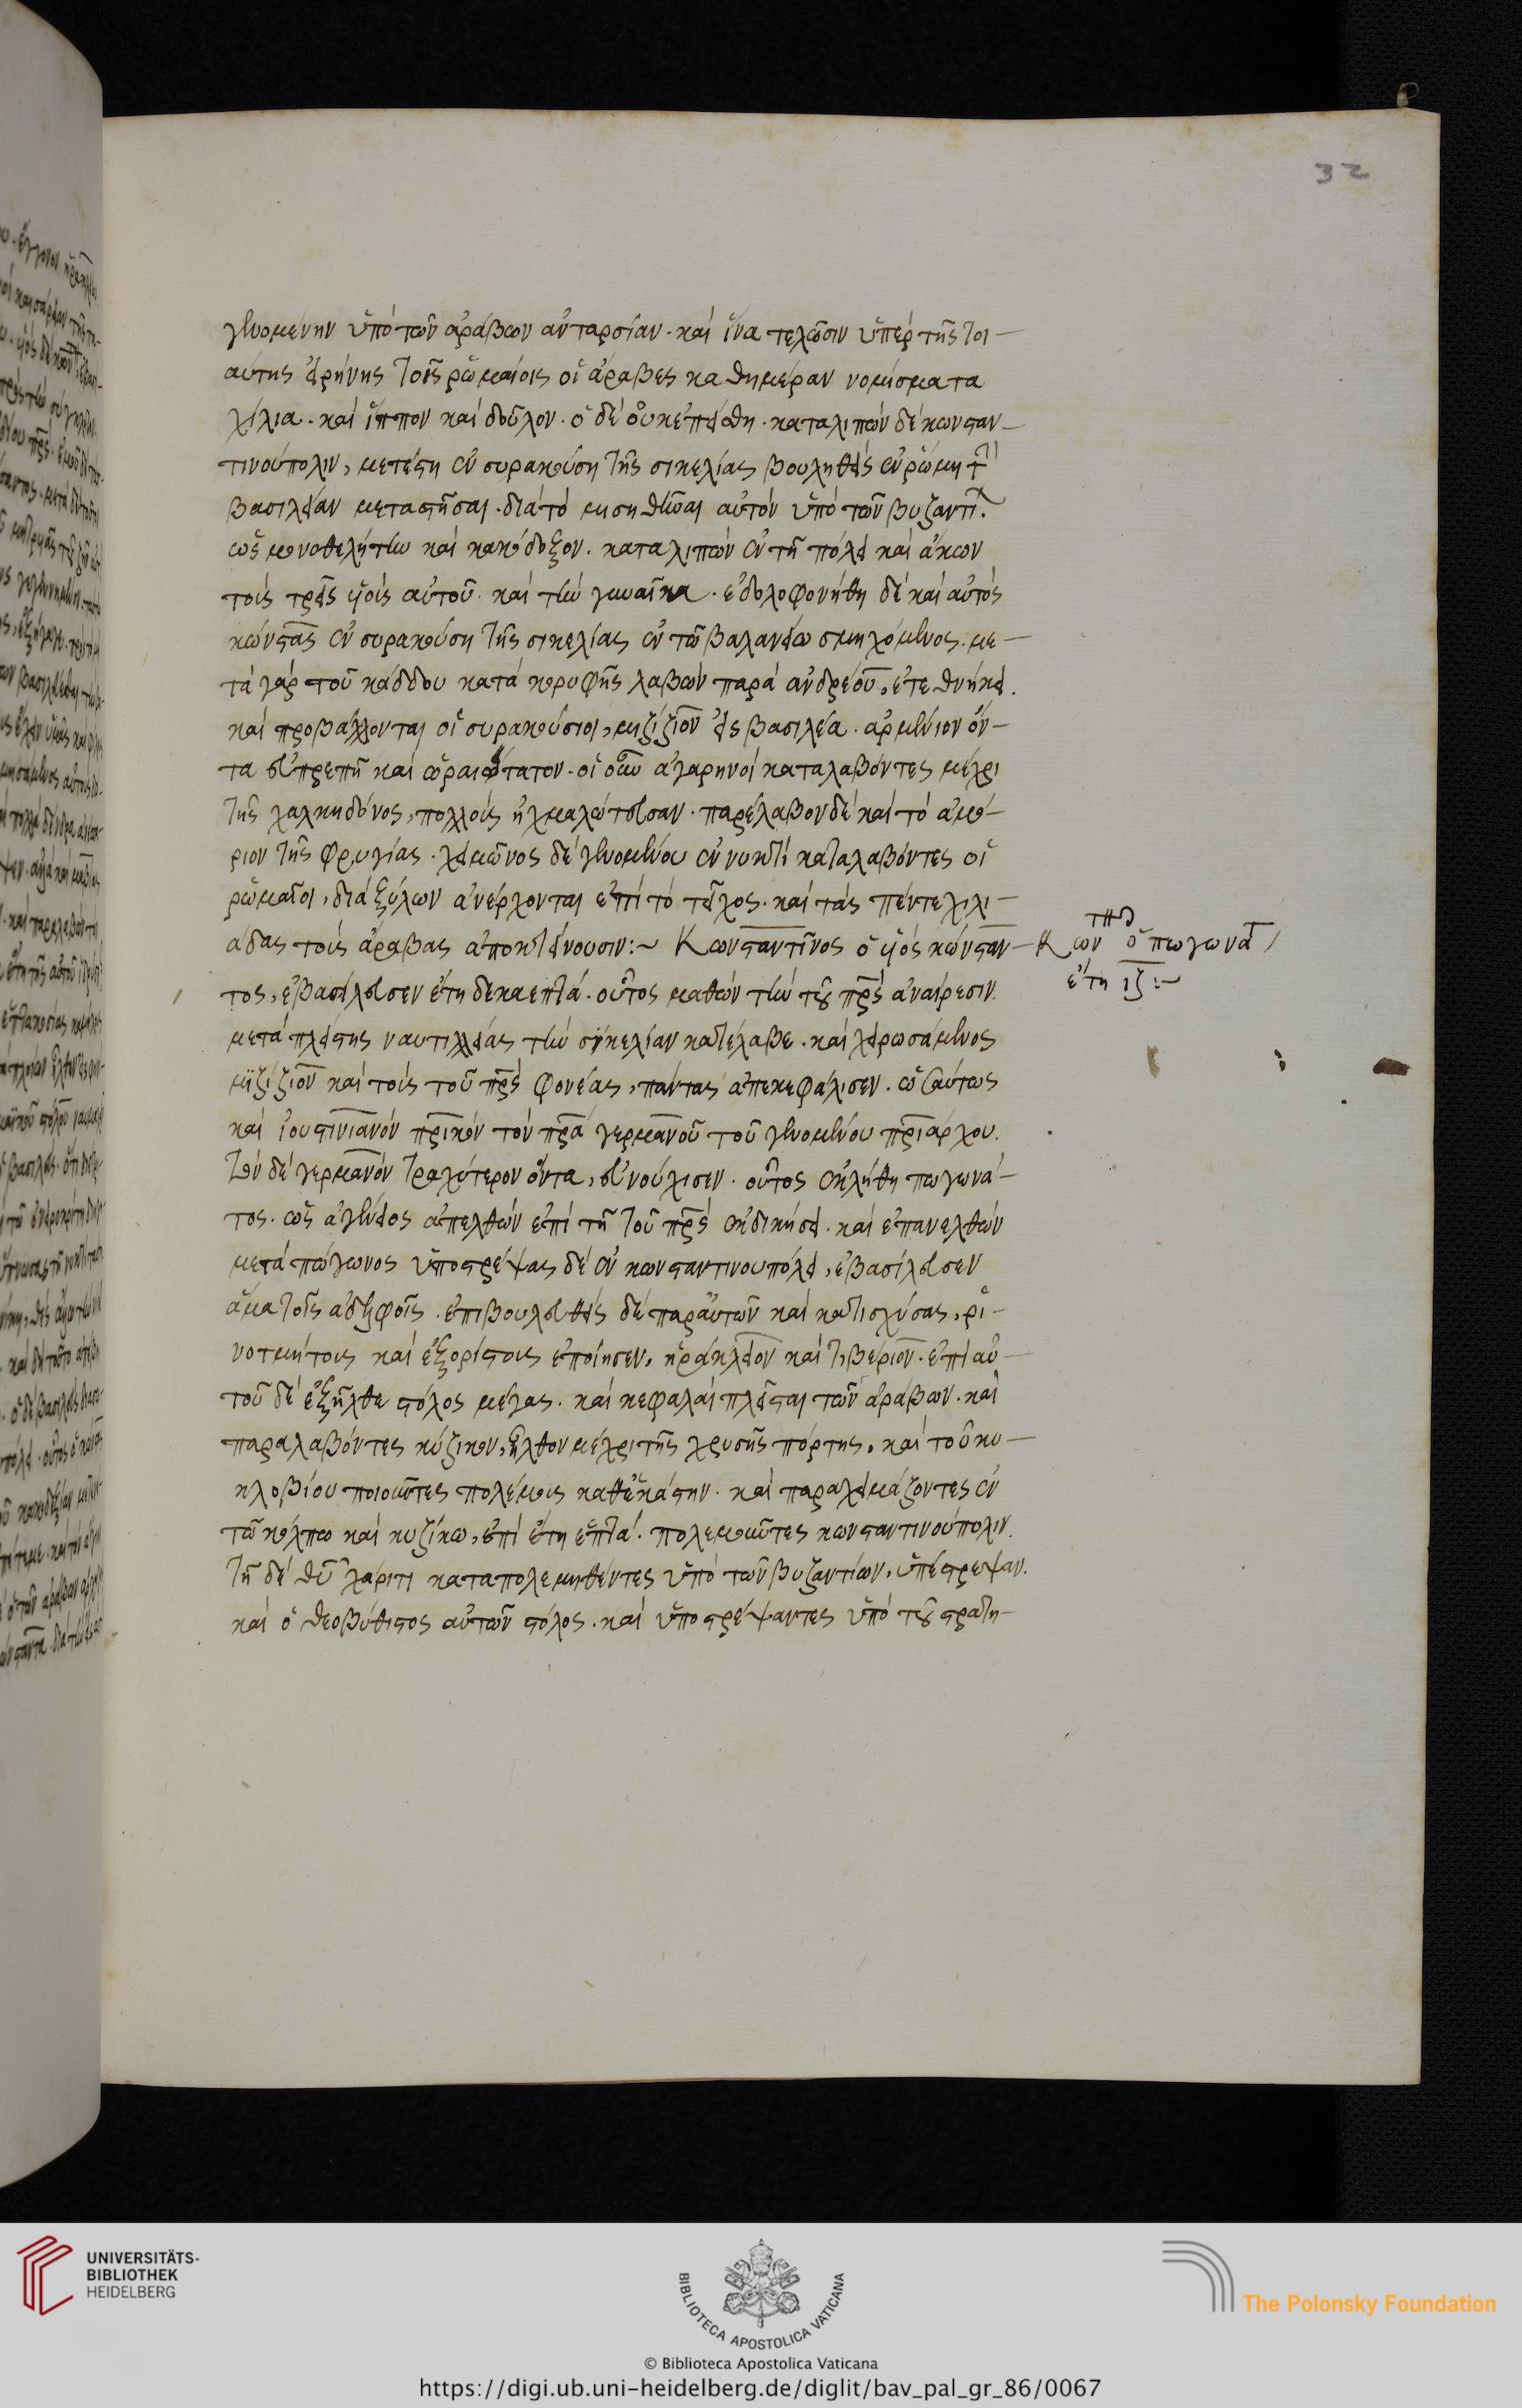 32
γενομένην ὑπὸ τῶν ἀράβων ἀνταρσίαν · καὶ ἵνα τελῶσιν ὑπὲρ τῆς τοι-
αύτης εἰρήνης τοῖς ῥωμαίοις οἱ ἄραβες καθημέραν νομίσματα
χίλια · καὶ ἵππον καὶ δοῦλον · ὁ δὲ οὐκ ἐπείσθη · καταλιπὼν δὲ κωνσταν-
τινούπολιν, μετέστη ἐν συρακούση τῆς σικελίας βουληθεὶς ἐν ῥώμη τ
βασιλείαν μεταστῆσαι · διατὸ μισηθῆναι αὐτὸν ὑπὸ τῶν βυζαντι
ὡς μονοθελήτην καὶ κακόδοξον · καταλιπὼν ἐν τῆ πόλει καὶ ἄκων
τοὺς τρεῖς υἱοὺς αὐτοῦ · καὶ τὴν γυναῖκα · ἐδολοφονήθη δὲ καὶ αὐτὸς
κώνστας ἐν συρακούση τῆς σικελίας ἐν τῶ βαλανείω σμηχόμενος · με-
τὰ γὰρ τοῦ κάδδου κατὰ κορυφῆς λαβὼν παρὰ ἀνδρέου, ἐτεθνήκει.
καὶ προβάλλονται οἱ συρακούσιοι, μηζίζιον εἰς βασιλέα · ἀρμένιον ὄν-
τα εὐπρεπῆ καὶ ὡραιότατον · οἱ οὖν ἀγαρηνοὶ καταλαβόντες μέχρι
τῆς χαλκηδόνος, πολλοὺς ἠχμαλώτευσαν · παρέλαβον δὲ καὶ τὸ ἀμό-
ριον τῆς φρυγίας · χειμῶνος δὲ γενομένου ἐν νυκτὶ καταλαβόντες οἱ
ῥωμαῖοι, διὰ ξύλων ἀνέρχονται ἐπὶ τὸ τεῖχος · καὶ τὰς πέντε χιλι-
άδας τοὺς ἄραβας ἀποκτείνουσιν :~ Κωνσταντῖνος ὁ υἱὸς κώνσταν-
Κων ὁ πωγωνατ
ἔτη ιζ :~
τος, ἐβασίλευσεν ἔτη δεκαεπτά · οὗτος μαθὼν τὴν τοῦ πρς ἀναίρεσιν.
μετὰ πλείστης ναυτιλλείας τὴν σικελίαν κατέλαβε · καὶ χειρωσάμενος
μϊζίζιον καὶ τοὺς τοῦ πρς φονέας, πάντας ἀπεκεφάλισεν · ὡσαύτως
καὶ ἰουστινιανὸν πρικον τὸν πρα γερμανοῦ τοῦ γενομένου πριάρχου.
τὸν δὲ γερμανὸν τραχύτερον ὄντα, εὐνούχισεν · οὗτος ἐκλήθη πωγωνά-
τος · ὡς ἀγένειος ἀπελθὼν ἐπὶ τῆ τοῦ πρς ἐκδικήσει · καὶ ἐπανελθὼν
μετὰ πώγωνος ὑποστρέψας δὲ ἐν κωνσταντινουπόλει, ἐβασίλευσεν
ἅμα τοῖς ἀδελφοῖς · ἐπιβουλευθεὶς δὲ παρ αὐτῶν καὶ κατισχύσας, ῥι-
νοτμήτους καὶ ἐξορίστους ἐποίησεν, ἡράκλειον καὶ τιβέριον · ἐπὶ αὐ-
τοῦ δὲ ἐξῆλθε στόλος μέγας · καὶ κεφαλαὶ πλεῖσται τῶν ἀράβων · καὶ
παραλαβόντες κύζικον, ἦλθον μέχρι τῆς χρυσῆς πόρτης, καὶ τοῦ κυ-
κλοβίου ποιοῦντες πολέμους καθεκάστην · καὶ παραχειμάζοντες ἐν
τῶ κόλπω καὶ κυζίκω, ἐπὶ ἔτη ἑπτά · πολεμοῦντες κωνσταντινούπολιν.
τῆ δὲ θυ χάριτι καταπολεμηθέντες ὑπὸ τῶν βυζαντίων, ὑπέστρεψαν.
καὶ ὁ θεοβύθιστος αὐτῶν στόλος · καὶ ὑποστρέψαντες ὑπὸ τοῦ στρατη-
UNIVERSITÄTS-
BIBLIOTHEK
HEIDELBERG
BIBLIOTECA APOSTOLICA VATICANA
The Polonsky Foundation
© Biblioteca Apostolica Vaticana
https://digi.ub.uni-heidelberg.de/diglit/bav_pal_gr_86/0067